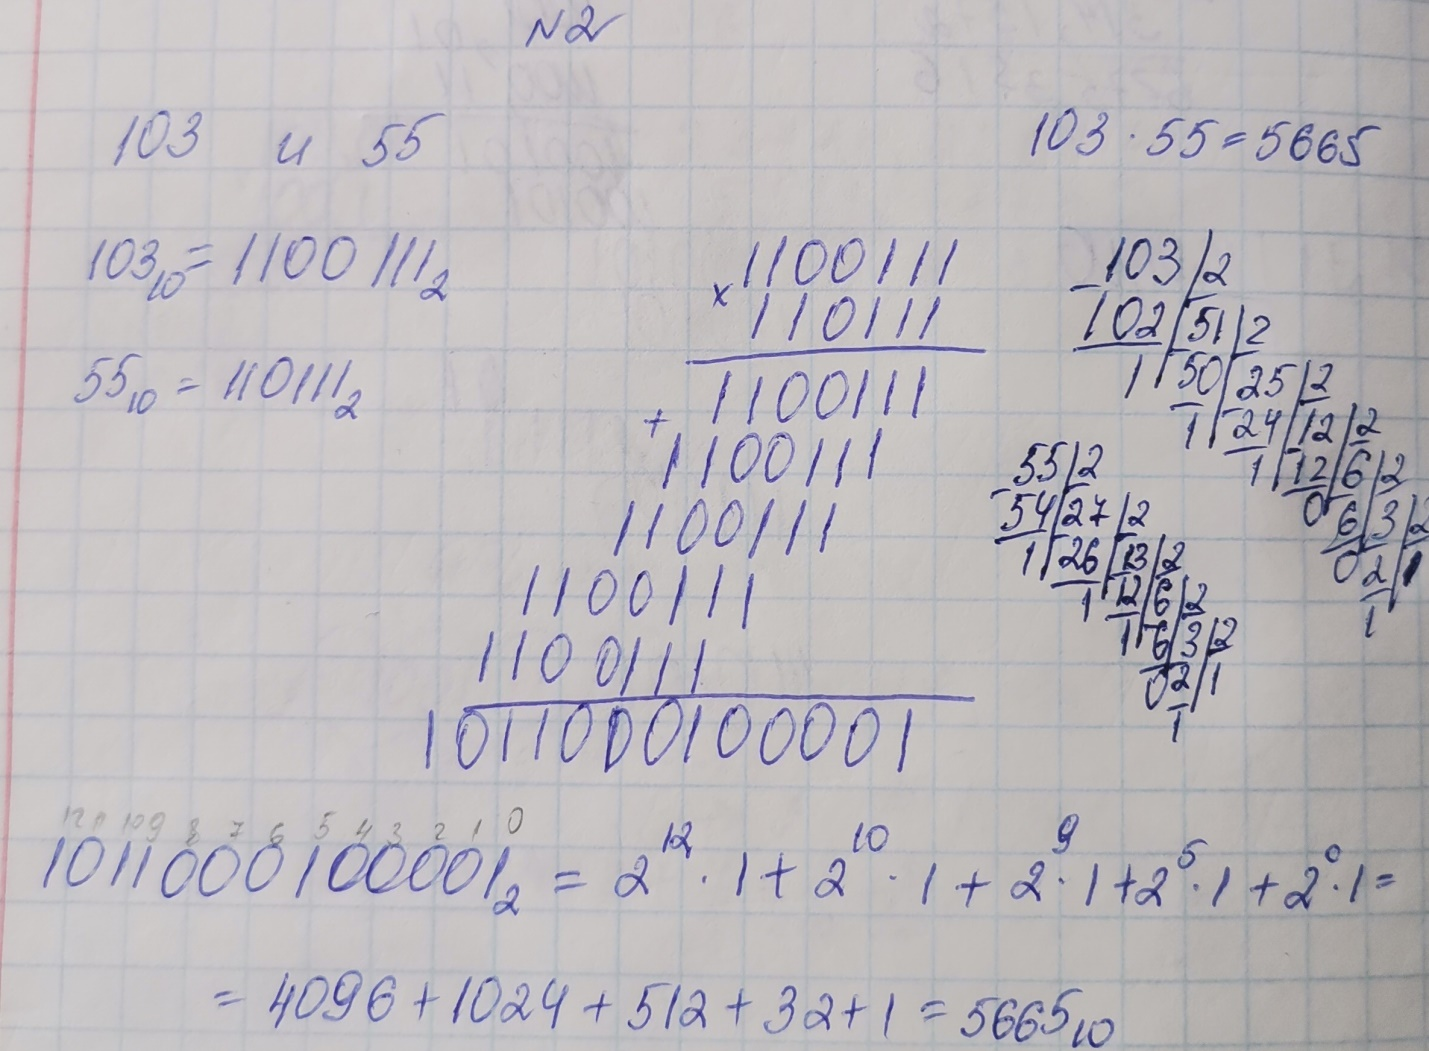 N2
103 и 55
103 · 55 = 5665
103₁₀ = 1100111₂
55₁₀ = 110111₂
1100111
× 110111
1100111
+ 1100111
1100111
1100111
1100111
1011000100001
- 103 | 2
102 | 51 | 2
1 | 50 | 25 | 2
1 | 24 | 12 | 2
1 | 12 | 6 | 2
0 | 6 | 3 | 2
0 | 2 | 1
1
- 55 | 2
54 | 27 | 2
1 | 26 | 13 | 2
1 | 12 | 6 | 2
1 | 6 | 3 | 2
0 | 2 | 1
1
12 11 10 9 8 7 6 5 4 3 2 1 0
1011000100001₂ = 2¹² · 1 + 2¹⁰ · 1 + 2⁹ · 1 + 2⁵ · 1 + 2⁰ · 1 =
= 4096 + 1024 + 512 + 32 + 1 = 5665₁₀